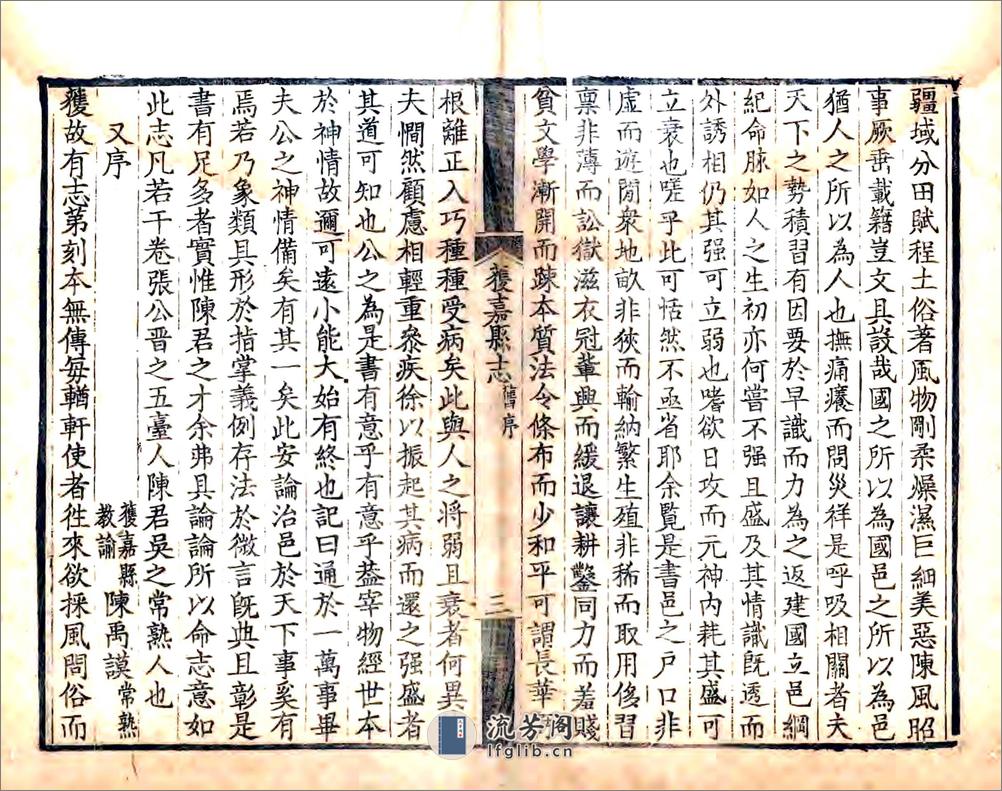 疆域分田賦程土俗著風物剛柔燥濕巨細美惡陳風昭
事厥垂載籍豈文具設哉國之所以為國邑之所以為邑
猶人之所以為人也撫痛癢而問災祥是呼吸相關者夫
天下之勢積習有因要於早識而力為之返建國立邑綱
紀命脉如人之生初亦何嘗不强且盛及其情識旣透而
外誘相仍其强可立弱也嗜欲日攻而元神內耗其盛可
立衰也嗟乎此可恬然不亟省耶余覧是書邑之戶口非
虛而遊閒衆地畝非狹而輸納繁生殖非稀而取用侈習
稟非薄而訟獄滋衣冠軰興而緩退讓耕鑿同力而羞賤
貧文學漸開而踈本質法令條布而少和平可謂長華
獲嘉縣志 舊序 三
根離正入巧種種受病矣此與人之將弱且衰者何異
夫憪然顧慮相輕重叅疾徐以振起其病而還之强盛者
其道可知也公之為是書有意乎有意乎葢宰物經世本
於神情故邇可遠小能大始有終也記曰通於一萬事畢
夫公之神情備矣有其一矣此安論治邑於天下事奚有
焉若乃象類具形於指掌義例存法於微言旣典且彰是
書有足多者實惟陳君之才余弗具論論所以命志意如
此志凡若干卷張公晉之五臺人陳君吳之常熟人也
又序 獲嘉縣教諭陳禹謨常熟
獲故有志第刻本無傳每輶軒使者徃來欲採風問俗而
流芳阁
lfglib.cn